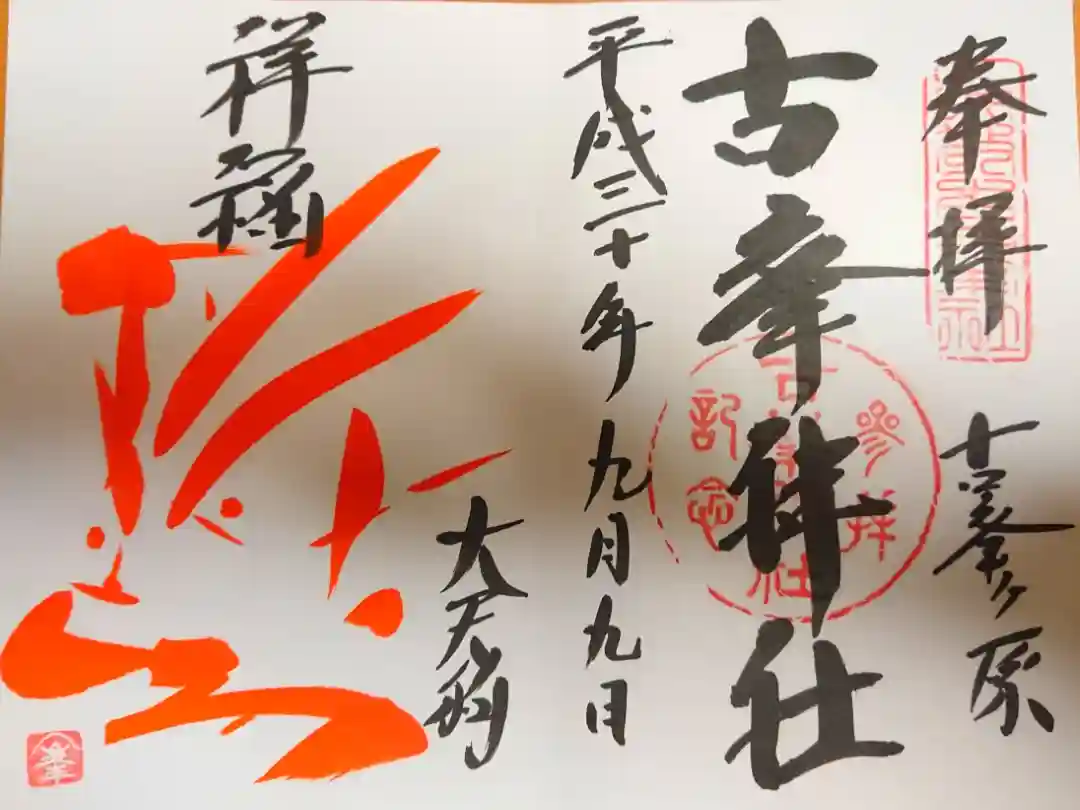 奉拝
古峯ヶ原
古峯神社
參拝
古峯神社
記念
平成三十年九月九日
大天狗
祥
峯